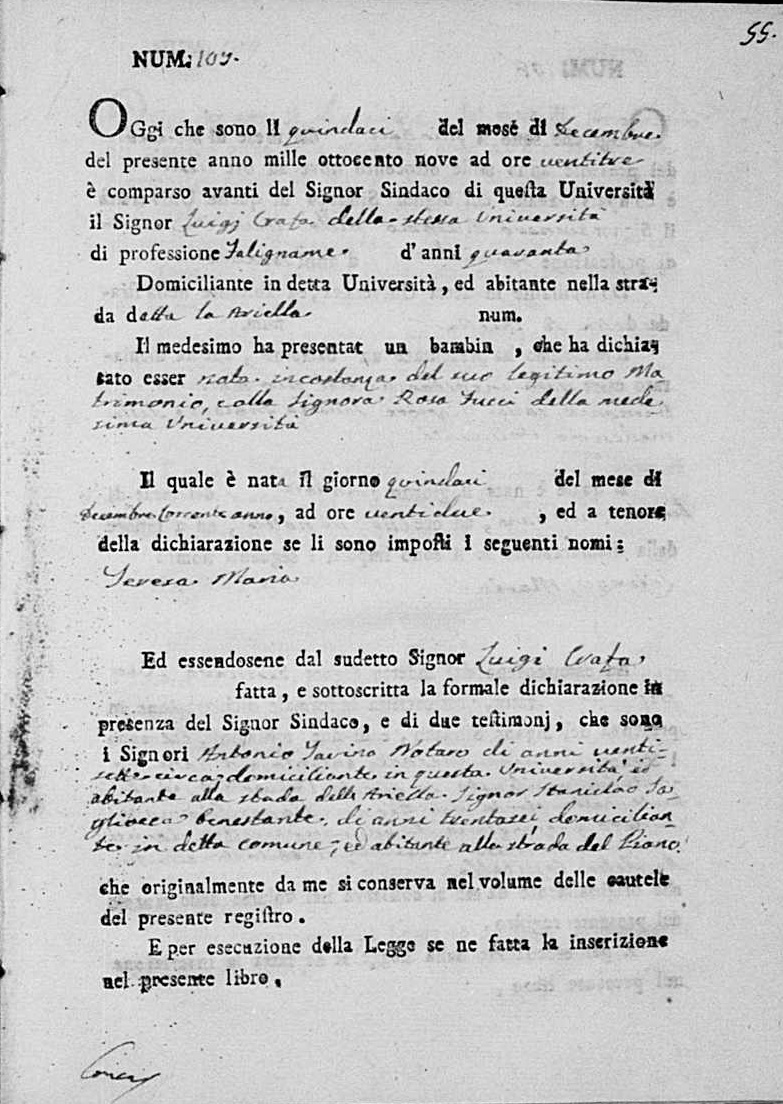 55.
NUM: 109.
OGgi che sono li quindaci del mese di Decembre
del presente anno mille ottocento nove ad ore ventitre
è comparso avanti del Signor Sindaco di questa Università
il Signor Luigi Crafa della stessa Università
di professione Faligname. d'anni quaranta
Domiciliante in detta Università, ed abitante nella stra-
da detta la Ariella. num.
Il medesimo ha presentat un bambin , che ha dichia-
rato esser nata in costanza del suo legitimo Ma
trimonio, colla Signora Rosa Fucci della mede
sima Università
Il quale è nata il giorno quindaci del mese di
Decembre Corrente anno, ad ore ventidue. , ed a tenore
della dichiarazione se li sono imposti i seguenti nomi:
Teresa Maria
Ed essendosene dal sudetto Signor Luigi Crafa
fatta, e sottoscritta la formale dichiarazione in
presenza del Signor Sindaco, e di due testimonj, che sono
i Signori Antonio Savino Notaro di anni venti-
sette circa domiciliante in questa Università, ed
abitante alla strada dell Ariella. Signor Stanislao Ta
gliacca benestante, di anni trentasei domicilian
te in detta comune, ed abitante alla strada del Piano.
che originalmente da me si conserva nel volume delle cautele
del presente registro.
E per esecuzione della Legge se ne fatta la inscrizione
nel presente libro.